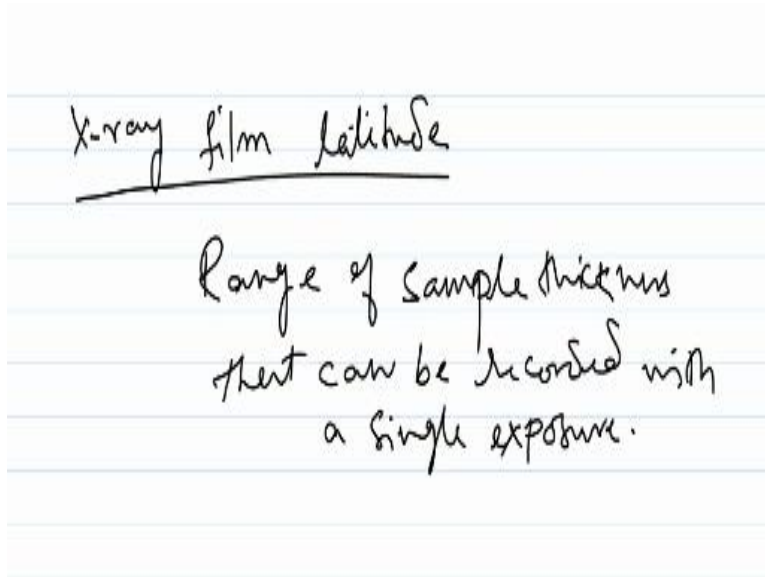 X-ray film latitude
Range of sample thickness
that can be recorded with
a single exposure.